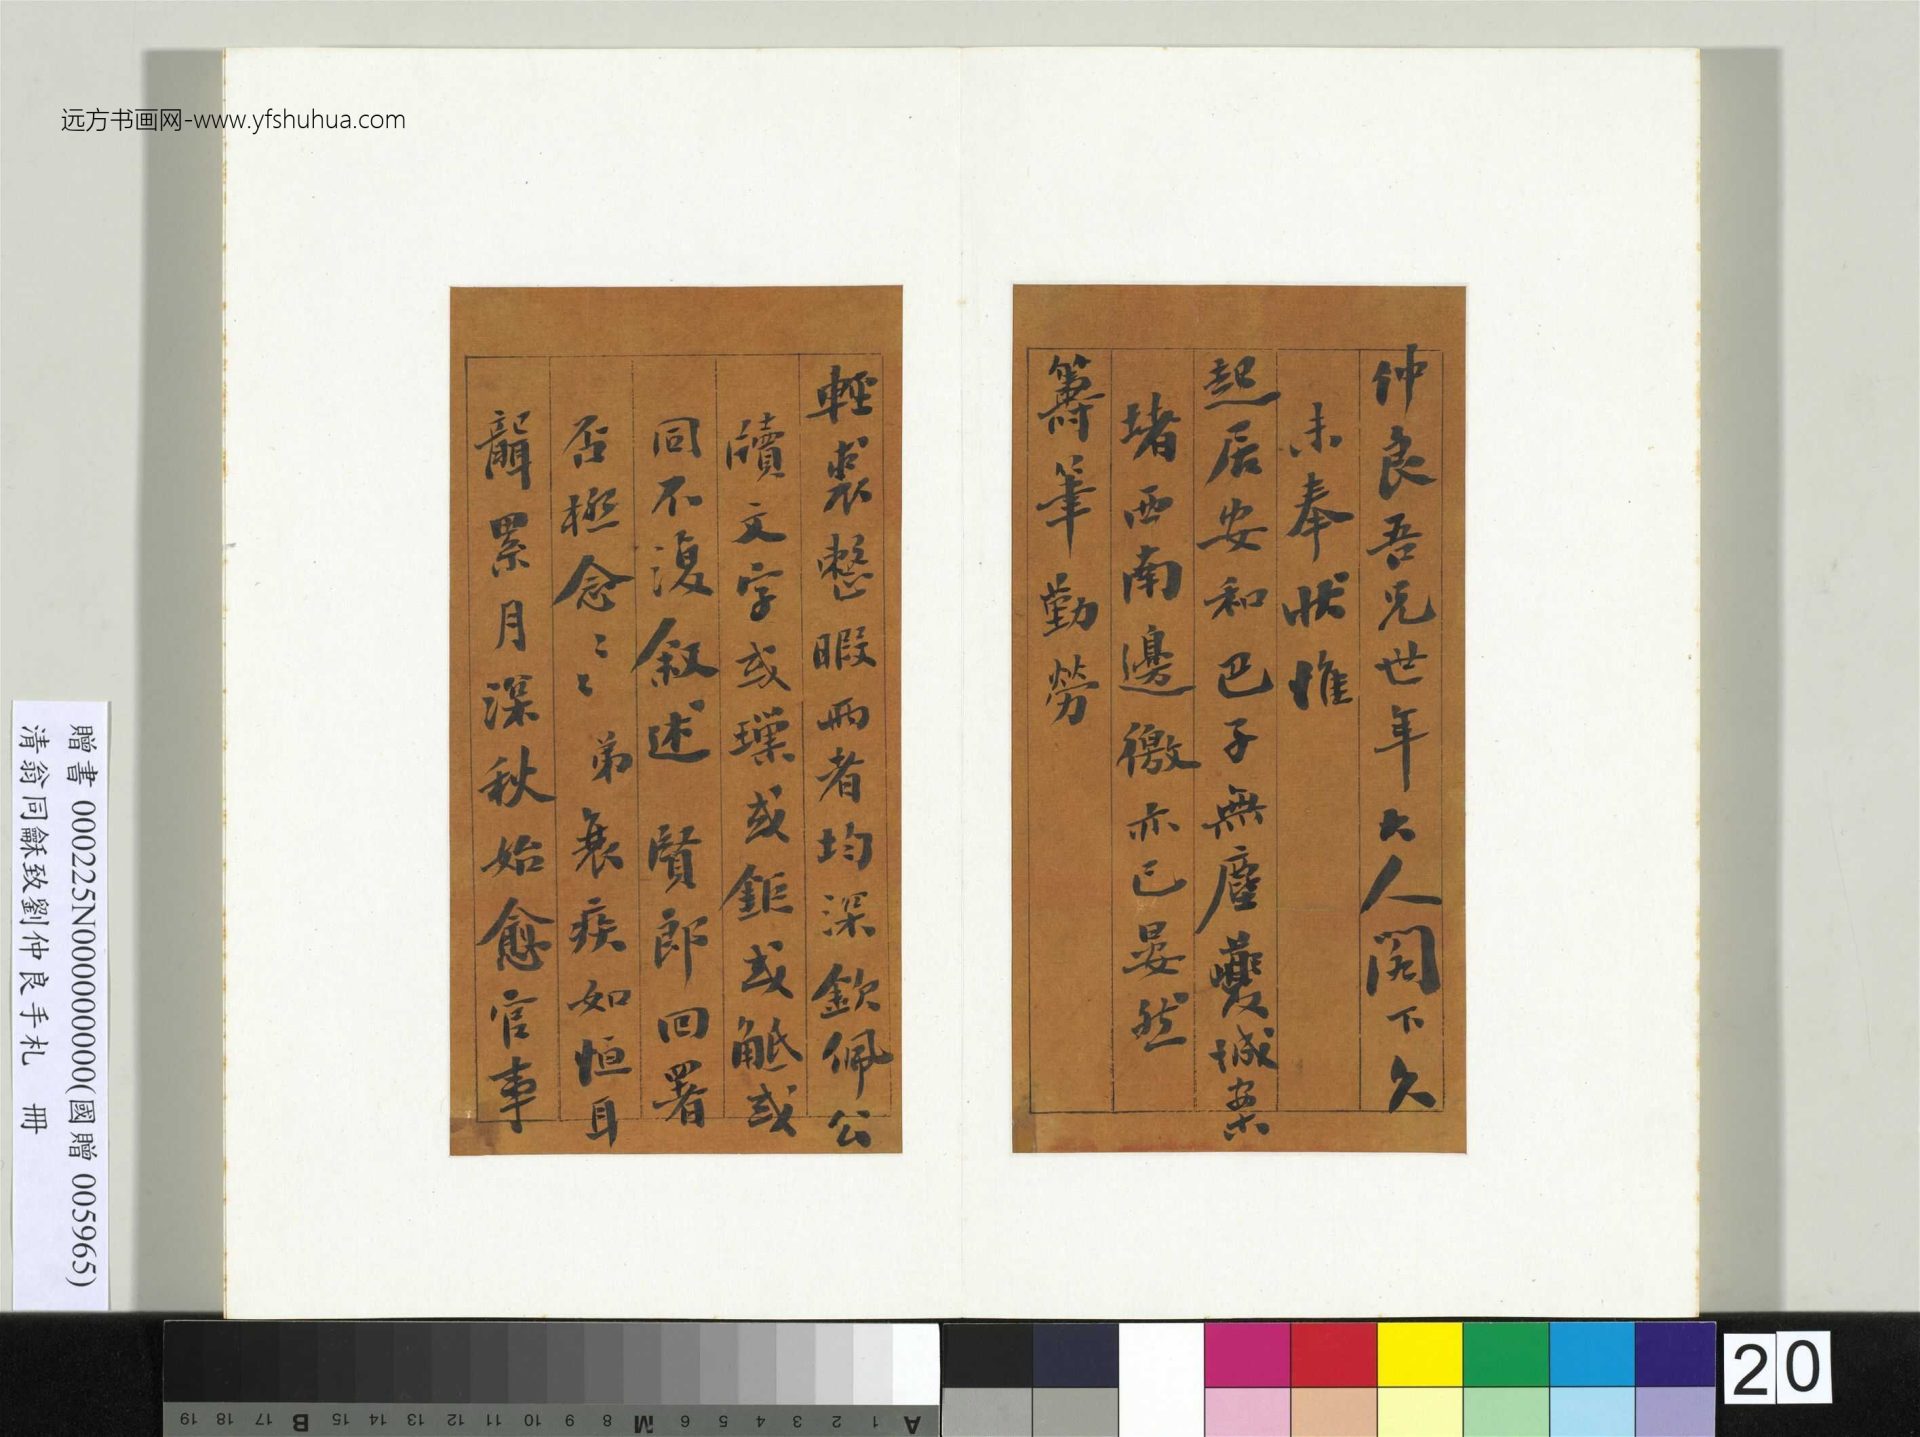 远方书画网-www.yfshuhua.com
仲良吾兄世年大人閣下久
未奉狀惟
起居安和巴子無塵夔城案
堵西南邊徼亦已晏然
籌筆勤勞
輕裘整暇兩者均深欽佩公
牘文字或璅或鉅或觝或
同不復叙述賢郎回署
否極念〻〻弟衰疾如恒耳
聾累月深秋始愈官事
贈書 000225N000000000(國贈 005965)
清翁同龢致劉仲良手札 冊
A 1 2 3 4 5 6 M 8 9 10 11 12 13 14 15 B 17 18 19
20